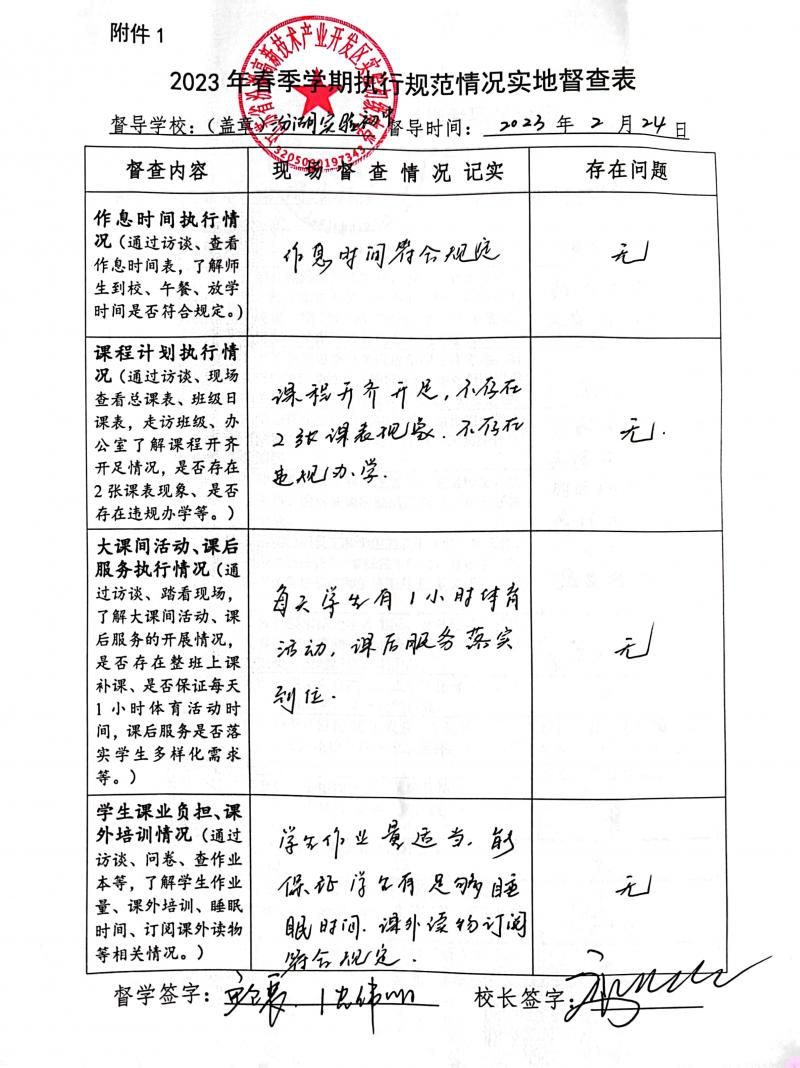 附件 1
2023 年春季学期执行规范情况实地督查表
3205090197343
督导学校：（盖章） 汾湖实验初中 督导时间： 2023 年 2 月 24 日
督查内容 现 场 督 查 情 况 记实 存在问题
作息时间执行情
况（通过访谈、查看
作息时间表，了解师
生到校、午餐、放学
时间是否符合规定。）
作息时间符合规定
无
课程计划执行情
况（通过访谈、现场
查看总课表、班级日
课表，走访班级、办
公室了解课程开齐
开足情况，是否存在
2 张课表现象、是否
存在违规办学等。）
课程开齐开足，不存在
2张课表现象．不存在
违规办学．
无．
大课间活动、课后
服务执行情况（通
过访谈、踏看现场，
了解大课间活动、课
后服务的开展情况，
是否存在整班上课
补课、是否保证每天
1 小时体育活动时
间，课后服务是否落
实学生多样化需求
等。）
每天学生有1小时体育
活动，课后服务落实
到位．
无
学生课业负担、课
外培训情况（通过
访谈、问卷、查作业
本等，了解学生作业
量、课外培训、睡眠
时间、订阅课外读物
等相关情况。）
学生作业量适当．能
保证学生有足够睡
眠时间．课外读物订阅
符合规定．
无
督学签字： 校长签字：